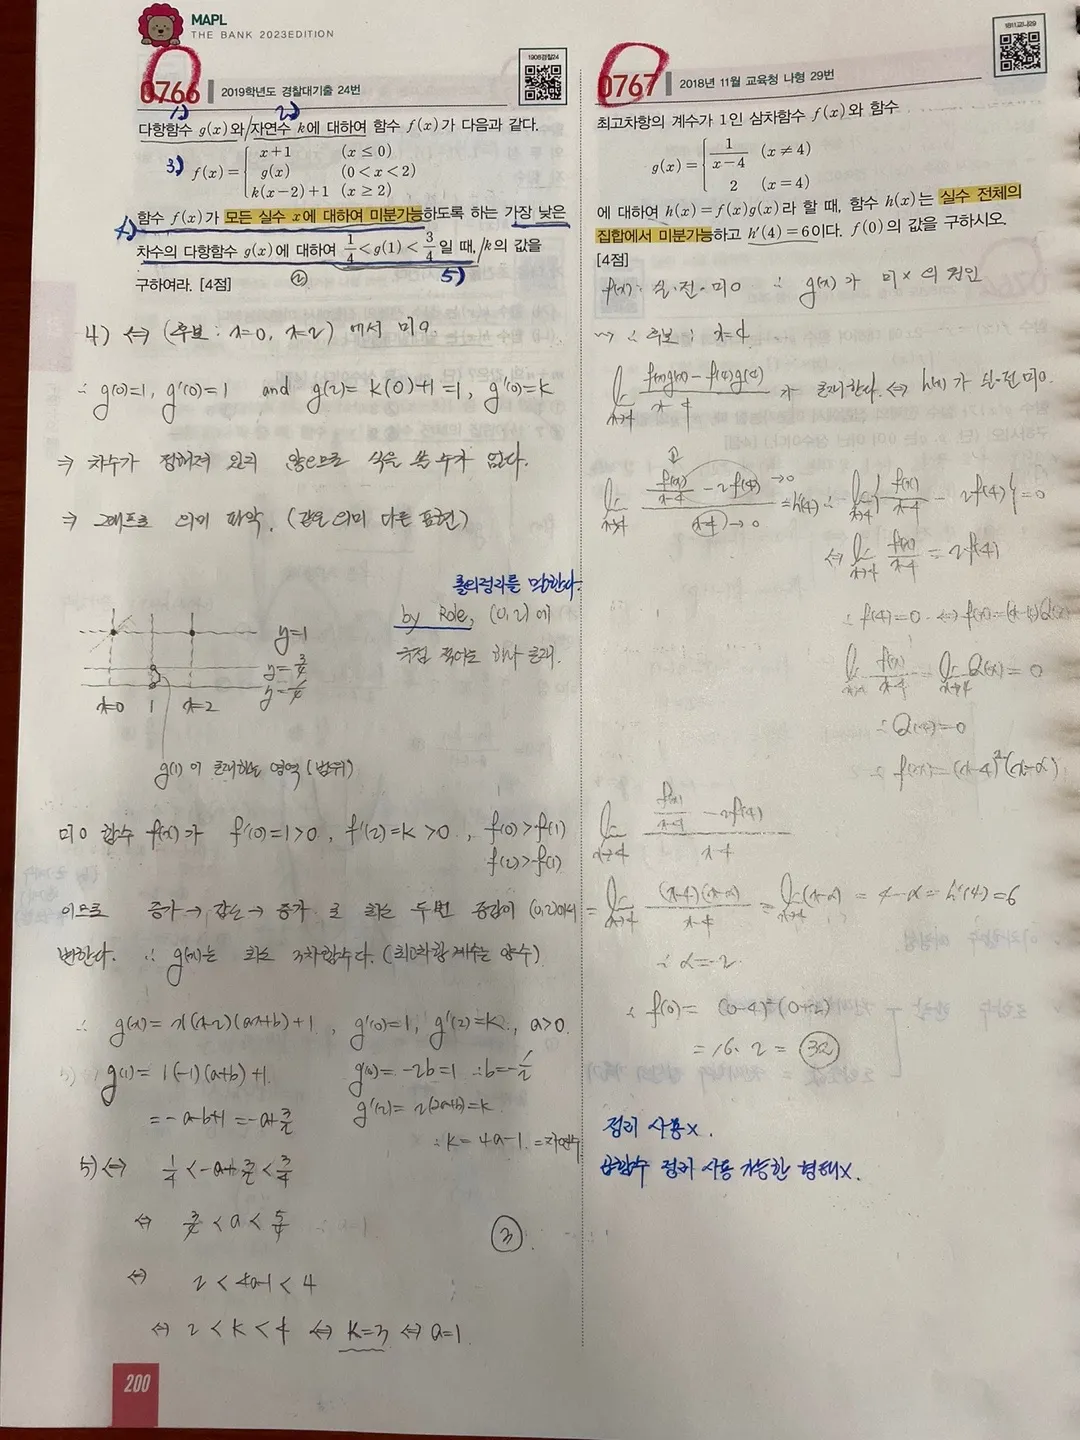 MAPL
THE BANK 2023EDITION
1906경찰24
0766 2019학년도 경찰대기출 24번
1) 2)
다항함수 g(x)와/자연수 k에 대하여 함수 f(x)가 다음과 같다.
3) f(x)= { x+1 (x≤0)
g(x) (0<x<2)
k(x-2)+1 (x≥2)
4) 함수 f(x)가 모든 실수 x에 대하여 미분가능하도록 하는 가장 낮은
차수의 다항함수 g(x)에 대하여 1/4<g(1)<3/4일 때,/k의 값을
구하여라. [4점] ② 5)
4) ⇔ (후보 : x=0, x=2) 에서 미o.
∴ g(0)=1, g'(0)=1 and g(2)=k(0)+1=1, g'(0)=k
⇒ 차수가 정해져 있지 않으므로 식을 쓸 수가 없다.
⇒ 그래프로 의미 파악. (같은 의미 다른 표현)
롤의정리를 말한다.
by Role, (0,2)에
극점 적어도 하나 존재.
y=1
y=3/4
y=1/4
x=0 1 x=2
g(1)이 존재하는 영역(범위)
미o 함수 f(x)가 f'(0)=1>0, f'(2)=k>0, f(0)>f(1)
f(2)>f(1)
이므로 증가→감소→증가 로 최소 두번 증감이 (0,2)에서
변한다. ∴ g(x)는 최소 3차함수다. (최고차항 계수는 양수)
∴ g(x)=x(x-2)(ax+b)+1, g'(0)=1, g'(2)=k, a>0.
g(1)=1(-1)(a+b)+1. g'(0)=-2b=1 ∴b=-1/2
=-a-b+1=-a+3/2 g'(2)=2(2a+b)=k.
∴k=4a-1.=자연수
5)⇔ 1/4<-a+3/2<3/4
⇔ 3/4<a<5/4
③
⇔ 2<4a-1<4
⇔ 2<k<4 ⇔ k=3 ⇔ a=1.
200
1811교나29
0767 2018년 11월 교육청 나형 29번
최고차항의 계수가 1인 삼차함수 f(x)와 함수
g(x)= { 1/(x-4) (x≠4)
2 (x=4)
에 대하여 h(x)=f(x)g(x)라 할 때, 함수 h(x)는 실수 전체의
집합에서 미분가능하고 h'(4)=6이다. f(0)의 값을 구하시오.
[4점]
f(x): 실.전.미o ∴ g(x)가 미x 의 원인
∴ 후보 : x=4
lim x→4 (f(x)g(x)-f(4)g(4))/(x-4) 가 존재한다. ⇔ h(x)가 실.전 미o.
lim x→4 (f(x)/(x-4) -2f(4))/(x-4) →0 →0 =h'(4) ∴ lim x→4 {f(x)/(x-4) - 2f(4)}=0
⇔ lim x→4 f(x)/(x-4) = 2f(4)
∴ f(4)=0. ⇔ f(x)=(x-4)Q(x)
lim x→4 f(x)/(x-4) = lim x→4 Q(x)=0
∴ Q(4)=0
f(x)=(x-4)²(x-α)
lim x→4 (f(x)/(x-4) -2f(4))/(x-4)
= lim x→4 (x-4)(x-α)/(x-4) = lim x→4 (x-α) = 4-α = h'(4)=6
∴ α=-2.
∴ f(0)= (0-4)²(0+2)
=16·2=32
정리 사용x.
곱함수 정리 사용 가능한 형태x.